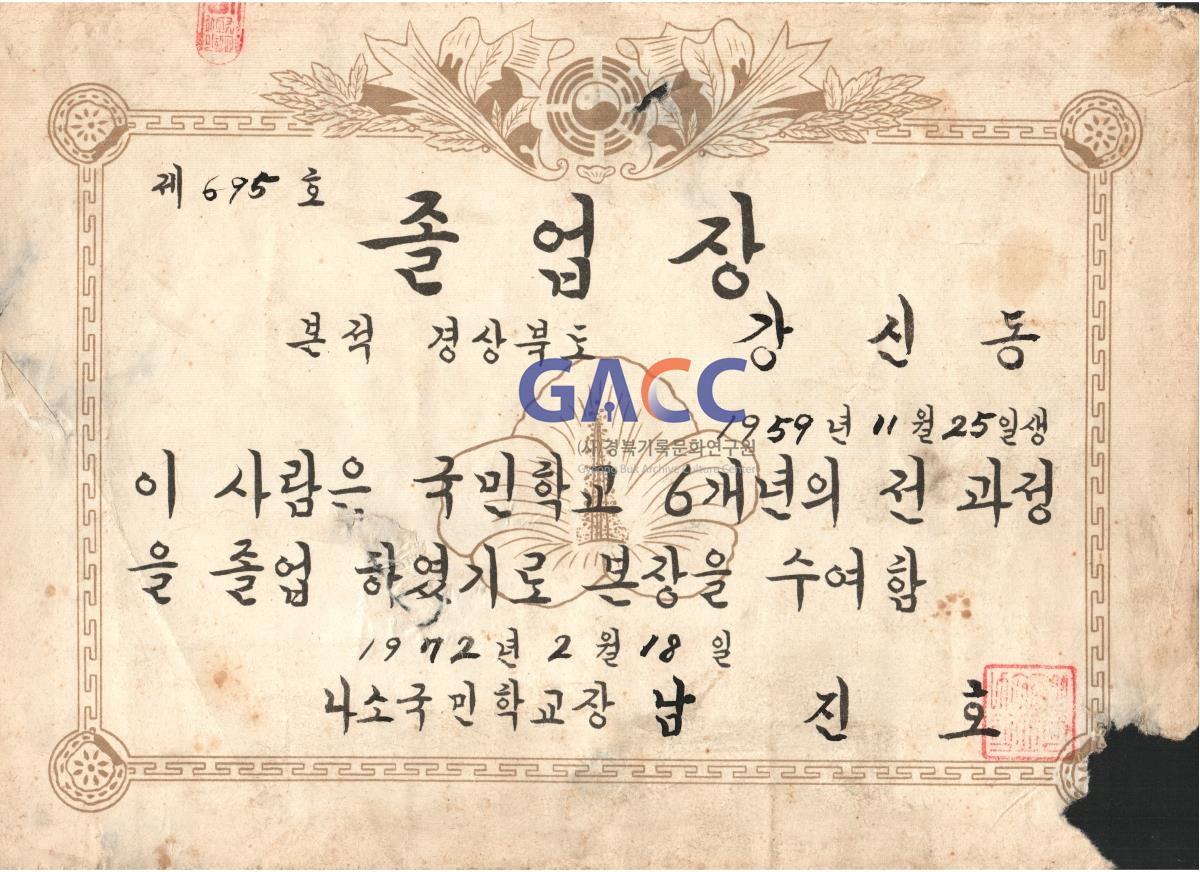 제 695 호
졸업장
본적 경상북도 강신동
GACC
1959년 11월 25일생
(사)경북기록문화연구원
Gyeong Buk Archive Culture Center
이 사람은 국민학교 6개년의 전 과정
을 졸업 하였기로 본장을 수여함
1972년 2월 18일
나소국민학교장 남진호